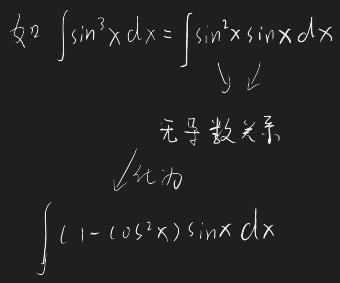 如 ∫sin³x dx = ∫sin²x sinx dx
无导数关系
化为
∫(1-cos²x) sinx dx